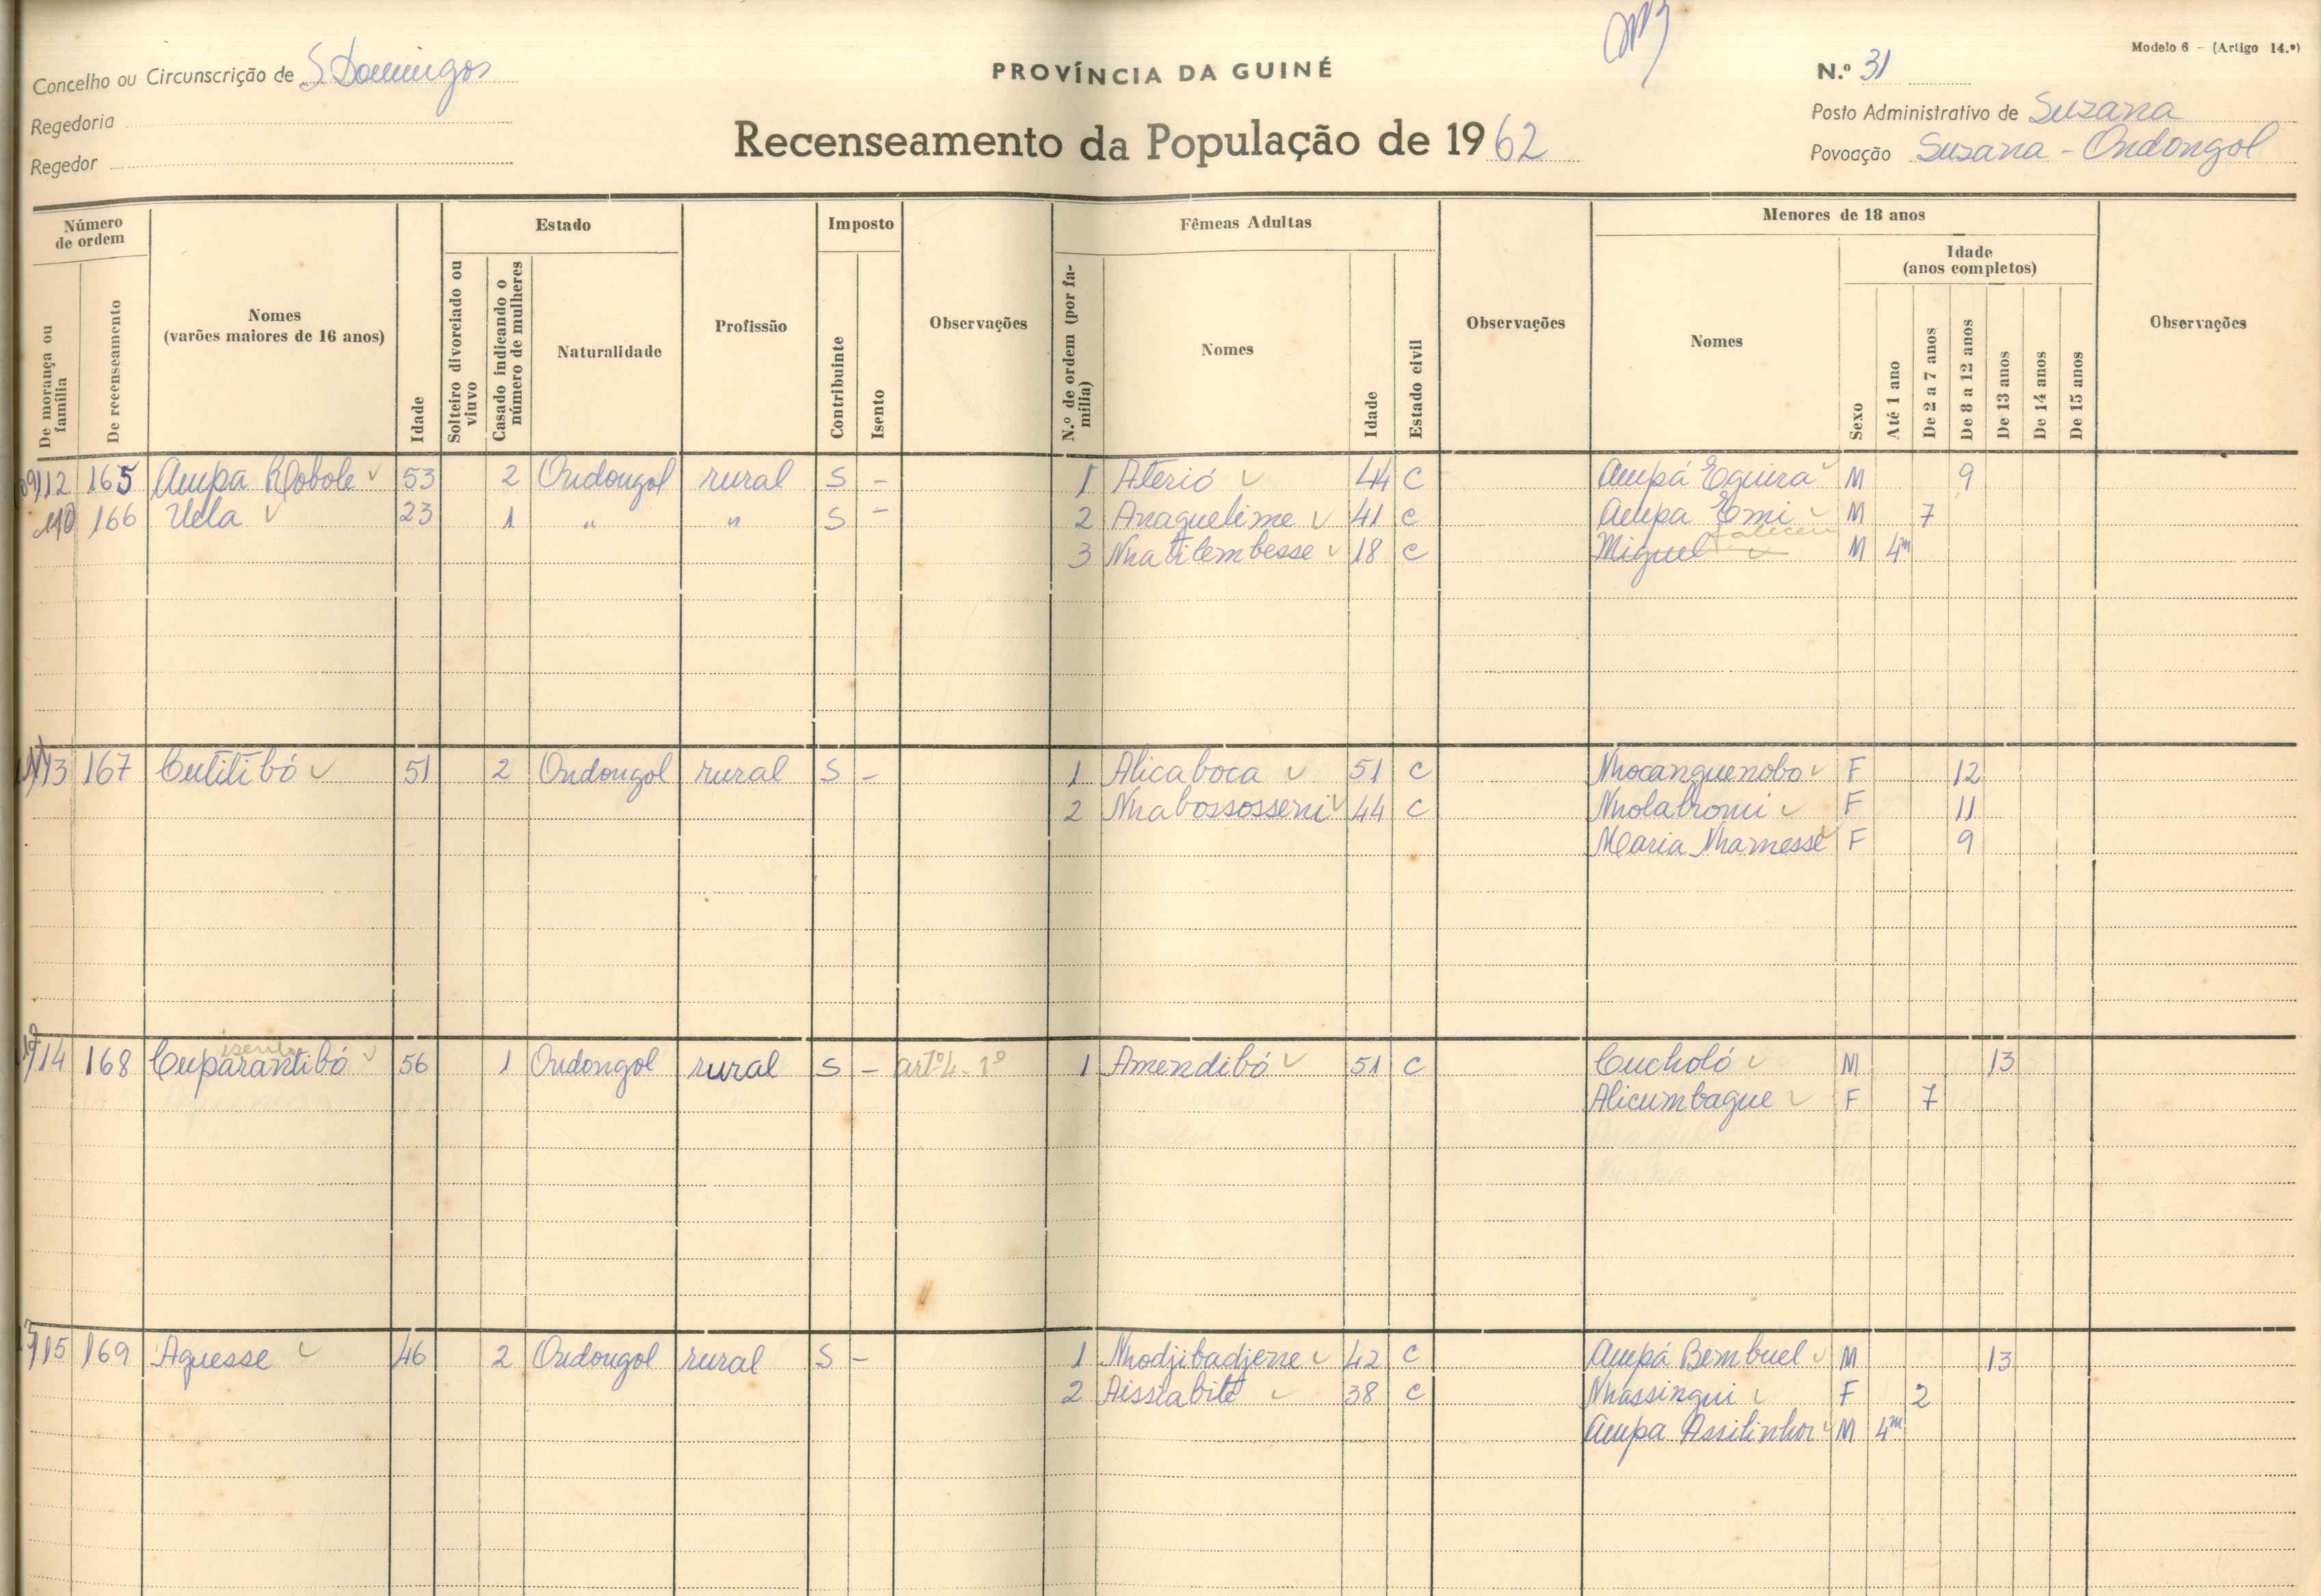 Modelo 6 - (Artigo 14.º)
Concelho ou Circunscrição de S. Domingos
PROVÍNCIA DA GUINÉ
N.º 31
Regedoria
Posto Administrativo de Suzana
Regedor
Recenseamento da População de 1962
Povoação Suzana - Ondongol
Número de ordem
Estado
Imposto
Fêmeas Adultas
Menores de 18 anos
Idade (anos completos)
De morança ou família
De recenseamento
Nomes (varões maiores de 16 anos)
Idade
Solteiro divorciado ou viuvo
Casado indicando o número de mulheres
Naturalidade
Profissão
Contribuinte
Isento
Observações
N.º de ordem (por família)
Nomes
Idade
Estado civil
Observações
Nomes
Sexo
Até 1 ano
De 2 a 7 anos
De 8 a 12 anos
De 13 anos
De 14 anos
De 15 anos
Observações
112 165 Ampa 53 2 Ondongol rural S - 1 Aterió 44 C Ampá Eguira M 9
110 166 Uela 23 1 " " S - 2 Anaquelime 41 C Ampa Emi M 7
faleceu
3 Nhatilembesse 18 C Miguel M 4m
113 167 Cutitibó 51 2 Ondongol rural S - 1 Alicaboca 51 C Nhocanguenobo F 12
2 Nhabossosseni 44 C Nholatromi F 11
Maria Nhamesse F 9
isento
114 168 Cuparantibó 56 1 Ondongol rural S - artº 4 - 1º 1 Amendibó 51 C Cucholó M 13
Alicumbague F 7
115 169 Aguesse 46 2 Ondongol rural S - 1 Nhodjibadjene 42 C Ampá Bembuel M 13
2 Aissiabite 38 C Nhassingui F 2
Ampa Assilinhor M 4m